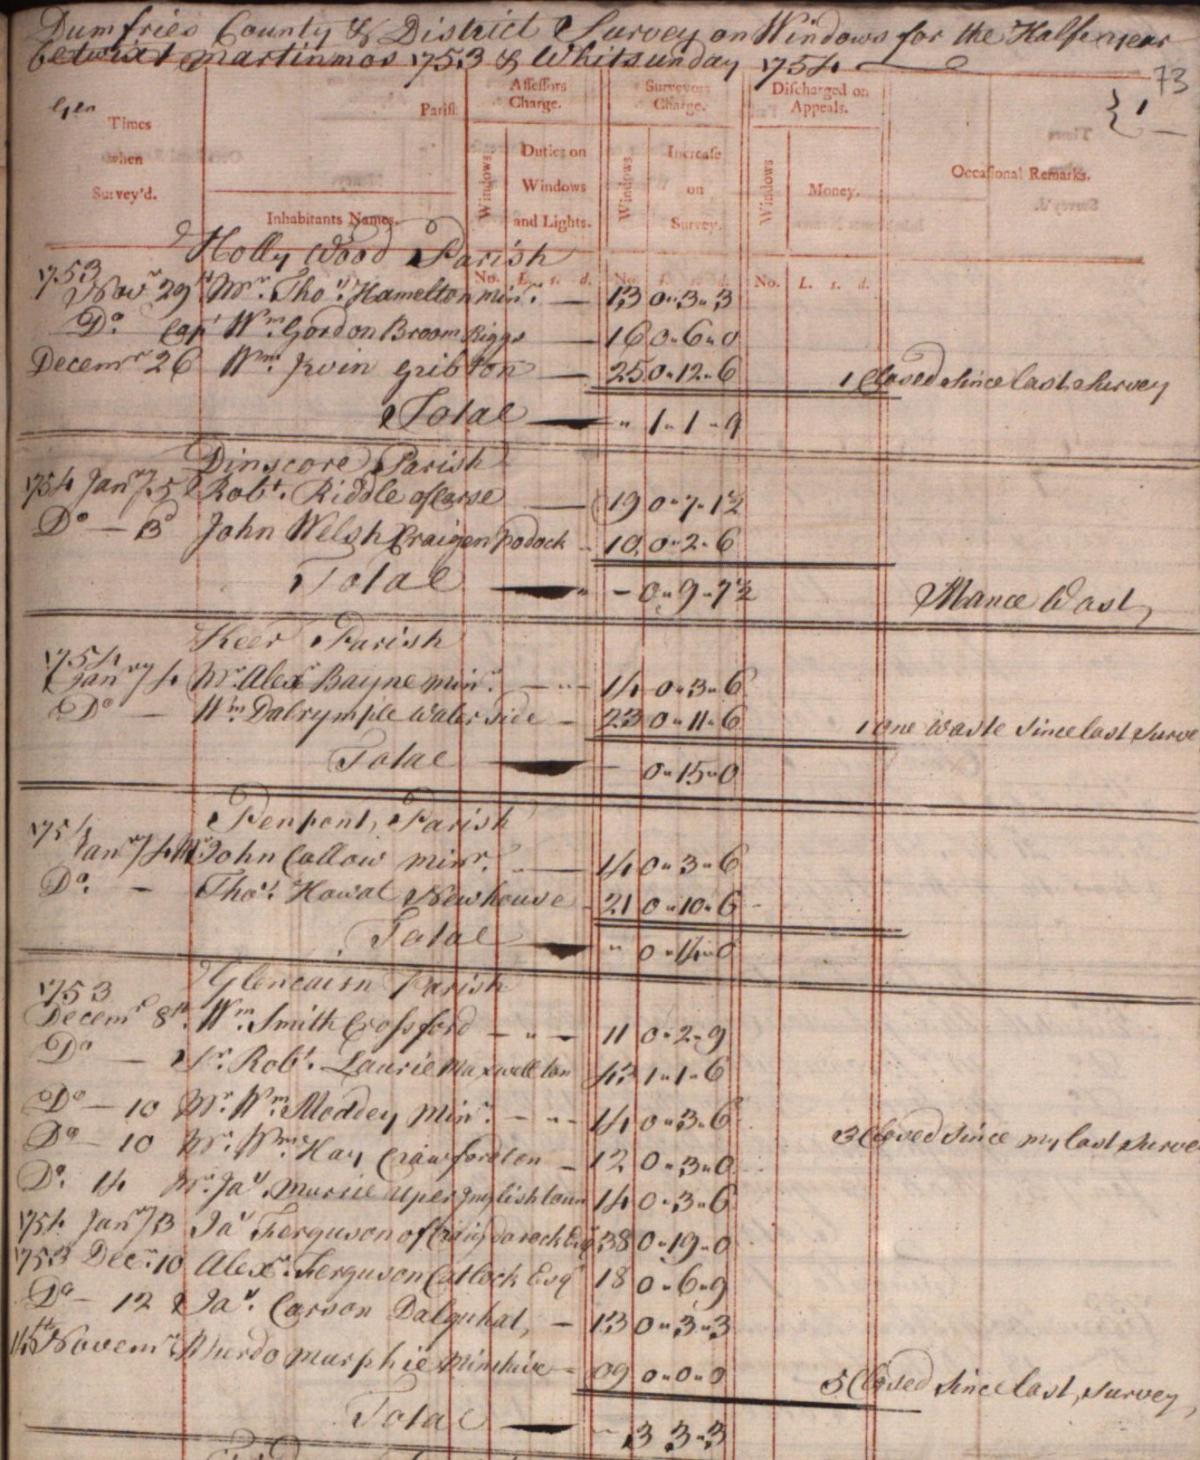 Dumfries County & District Survey on Windows for the Halfe year
betwixt martinmas 1753 & Whitsunday 1754
73
Times when Survey'd.
Parish
Inhabitants Names.
Assessors Charge.
Windows
Duties on Windows and Lights.
Surveyors Charge.
Windows
Increase on Survey.
Discharged on Appeals.
Windows
Money.
Occasional Remarks.
No. L. s. d. No. L. s. d. No. L. s. d.
Holly Wood Parish
1753
Novr 29th Mr. Thos. Hamelton minr. — 13 0-3-3
Do Capt Wm. Gordon Broom Riggs — 16 0-6-0
Decemr 26 Wm. Irvin Gribton — 25 0-12-6 1 Closed since last survey
Total 1-1-9
Dinscore Parish
1754 Janry 5 Robt. Riddle of Carse — 19 0-7-1½
Do — 3d John Welsh Craigenpodock 10 0-2-6
Total — 0-9-7½ Mance Wast
Keer Parish
1754
Janry 4 Mr. Alexr Bayne minr. 14 0-3-6
Do — Wm Dalrymple Waterside — 23 0-11-6 1 one waste since last surve
Total 0-15-0
Penpont Parish
1754
Janry 4 Mr John Collow minr. — 14 0-3-6
Do. — Thos. Howat Newhouse 21 0-10-6
Total 0-14-0
Glencairn Parish
1753
Decemr 8th. Wm. Smith Crossford — 11 0-2-9
Do — Sr. Robt. Laurie Maxwellton 43 1-1-6
Do — 10 Mr. Wm. Moddey Minr. — 14 0-3-6
Do — 10 Mr. Wm. Hay Crawfordton — 12 0-3-0 3 Closed since my last surve
Do. 14 Mr. Jas. Murrie Uper Inglishtoun 14 0-3-6
1754 Janry 3 Jas Ferguson of Craigdaroch Esqr 38 0-19-0
1753 Decr. 10 Alexr. Ferguson Catlock Esqr 18 0-6-9
Do — 12 Jas. Carson Dalquhat, — 13 0-3-3
14th Novemr Murdo murphie Minihive 09 0-0-0 5 Closed since last survey
Total 3 3-3